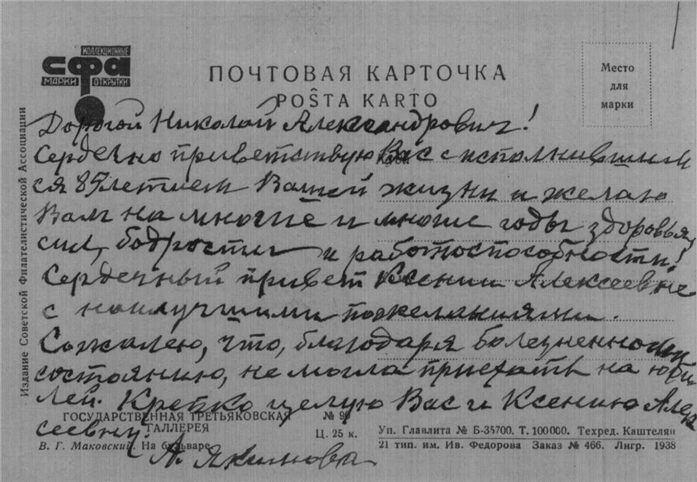 КОЛЛЕКЦИОННЫЕ
СФА
МАРКИ ОТКРЫТКИ
ПОЧТОВАЯ КАРТОЧКА
POŜTA KARTO
Место
для
марки
Издание Советской Филателистической Ассоциации
Дорогой Николай Александрович!
Сердечно приветствую Вас с исполнившим
ся 85летием Вашей жизни и желаю
Вам на многие и многие годы здоровья,
сил, бодрости и работоспособности!
Сердечный привет Ксении Алексеевне
с наилучшими пожеланиями.
Сожалею, что, благодаря болезненному
состоянию, не могла приехать на юби
лей. Крепко целую Вас и Ксению Алек
сеевну.
А. Якимова
ГОСУДАРСТВЕННАЯ ТРЕТЬЯКОВСКАЯ
ГАЛЛЕРЕЯ
В. Г. Маковский. На бульваре
Ц. 25 к.
Уп. Главлита № Б-35700. Т. 100000. Техред. Каштелян
21 тип. им. Ив. Федорова Заказ № 466. Лнгр. 1938